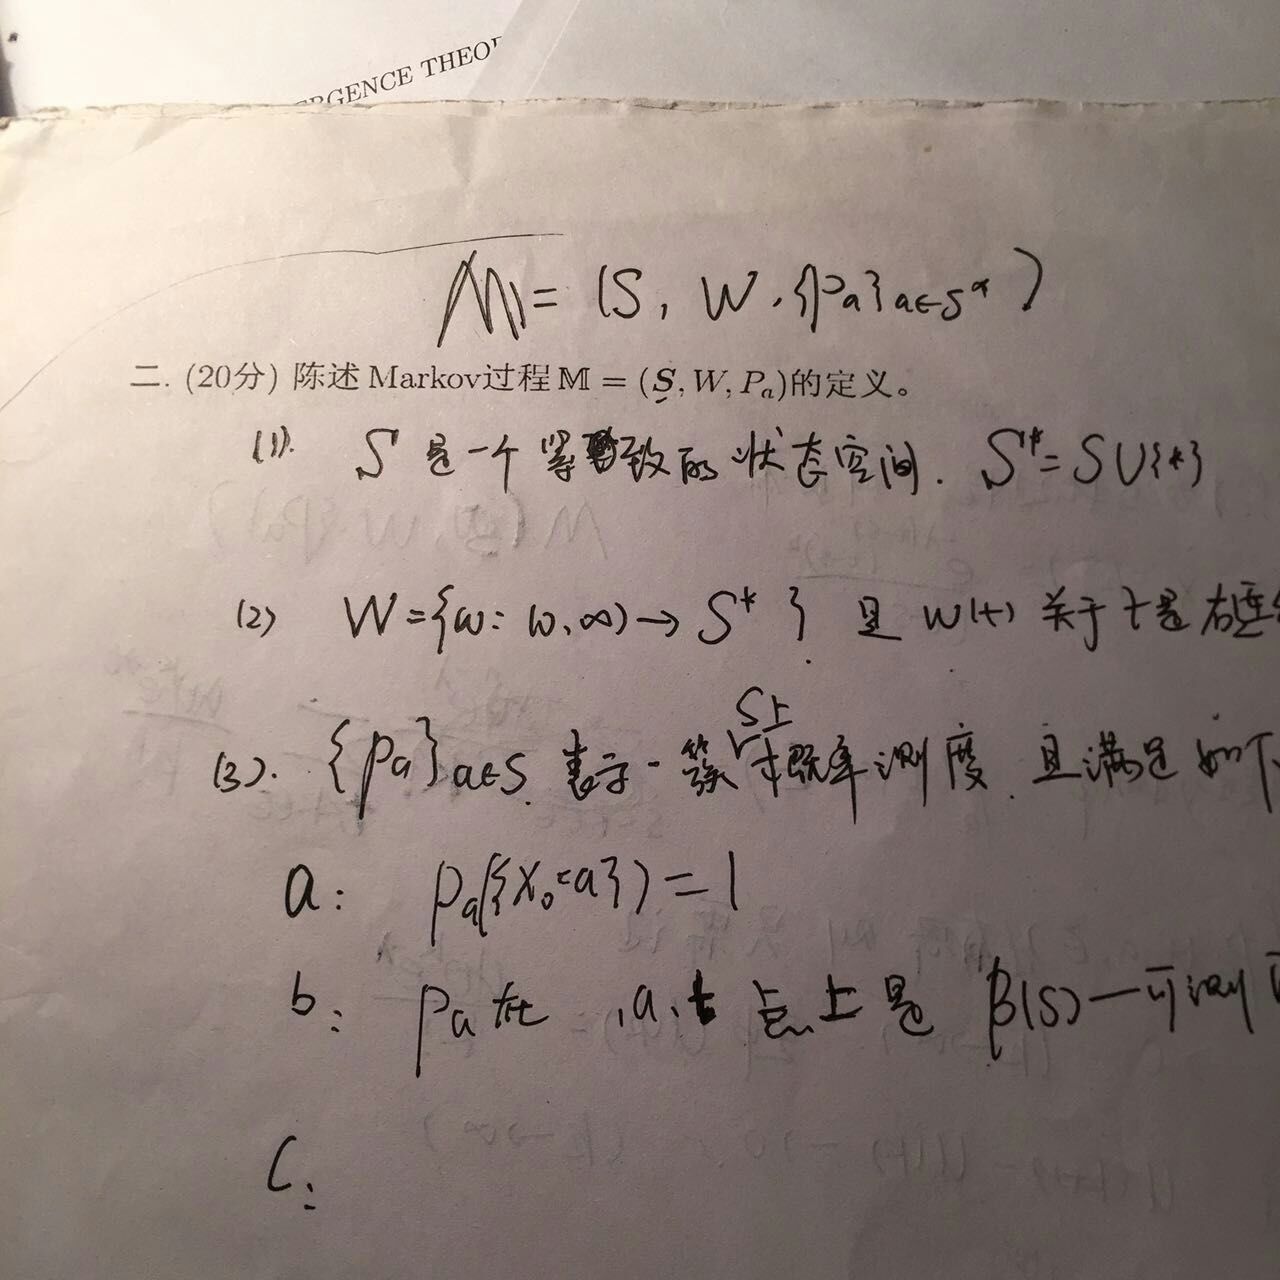 ERGENCE THEO
M = (S, W, {Pa}a∈S*)
二. (20分) 陈述 Markov过程 M = (S, W, Pa)的定义。
(1). S 是一个紧致的状态空间. S* = S∪{*}
(2) W = {w: [0,∞) → S*}. 且 w(t) 关于 t 是右连
S上
(3). {Pa}a∈S 表示一簇 概率测度. 且满足如下
a: Pa({X₀=a}) = 1
b: Pa 在 a 点上是 β(S)—可测
C: